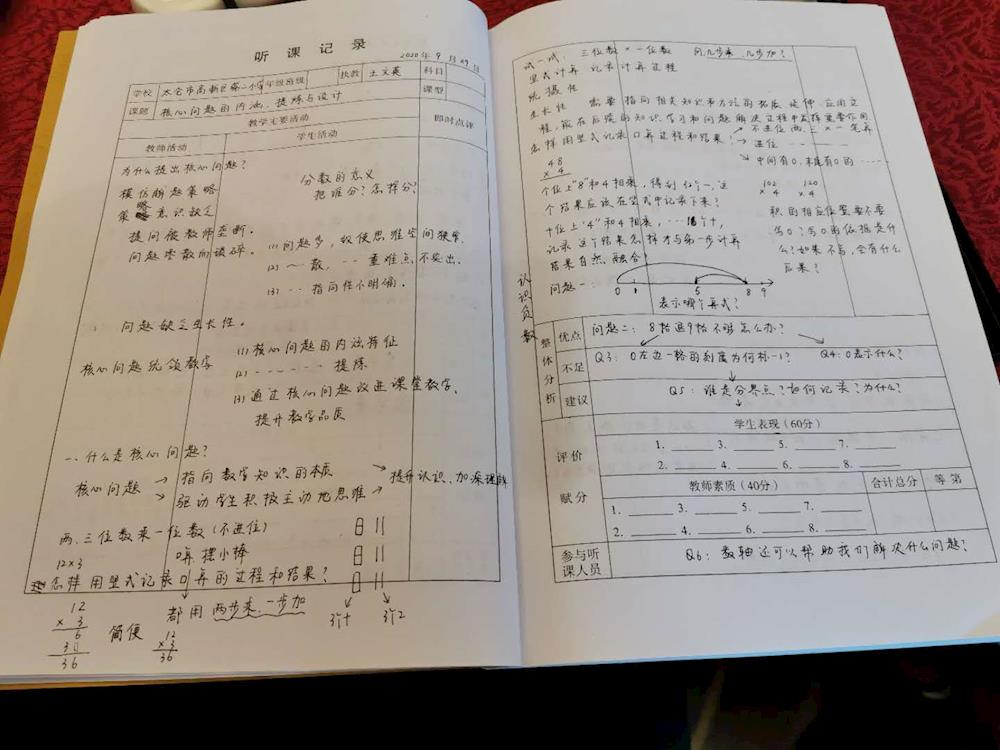 听课记录
2020年9月29日
学校 太仓市高新区第二小学 年级班级 执教 王文英 科目
课题 核心问题的内涵、提炼与设计 课型
教学主要活动 即时点评
教师活动 学生活动
为什么提出核心问题?
分数的意义
把谁分?怎样分?
模仿解题策略
策略意识缺乏
提问被教师垄断。
问题零散而琐碎。
(1) 问题多,致使思维空间狭窄.
(2) 〜散,‥重难点不突出.
(3) ‥指向性不明确。
问题缺乏生长性。
核心问题统领教学
(1) 核心问题的内涵特征
(2) ------ 提炼
(3) 通过核心问题改进课堂教学,
提升教学品质
一、什么是核心问题?
核心问题 → 指向数学知识的本质
→ 驱动学生积极主动地思维 → 提升认识、加深理解
两、三位数乘一位数(不进位)
12×3 口算 摆小棒
怎样用竖式记录口算的过程和结果?
都用两步乘、一步加
3个十 3个2
12
× 3
6
30
36
简便
12
×3
36
试一试: 三位数 × 一位数 问:几步乘、几步加?
竖式计算 记录计算过程
统摄性
生长性 需要指向相关知识和方法的拓展、延伸、应用过
程,能在后续的知识学习和问题解决过程中发挥重要作用
怎样用竖式记录口算过程和结果? → 不进位两、三 × 一 笔算
→ 进位 ------
→ 中间有0、末尾有0的 ‥‥
48
× 4
个位上"8"和4相乘,得到32个一,这
个结果应该在竖式中记录下来?
十位上"4"和4相乘,…16个十,
记录这个结果怎样才与第一步计算
结果自然融合?
102
× 4
120
× 4
积的相应位置要不要
写0?写0的依据是什
么?如果不写,会有什么
后果?
认识负数
问题一:
0 1 5 8 9
表示哪个算式?
整体分析
优点 问题二: 8格退9格不够怎么办?
不足 Q3: 0左边一格的刻度为何标-1? Q4: 0表示什么?
建议 Q5: 谁是分界点?如何记录?为什么?
评价 学生表现(60分)
1. 3. 5. 7.
2. 4. 6. 8.
赋分 教师素质(40分) 合计总分 等第
1. 3. 5. 7.
2. 4. 6. 8.
参与听课人员 Q6: 数轴还可以帮助我们解决什么问题?